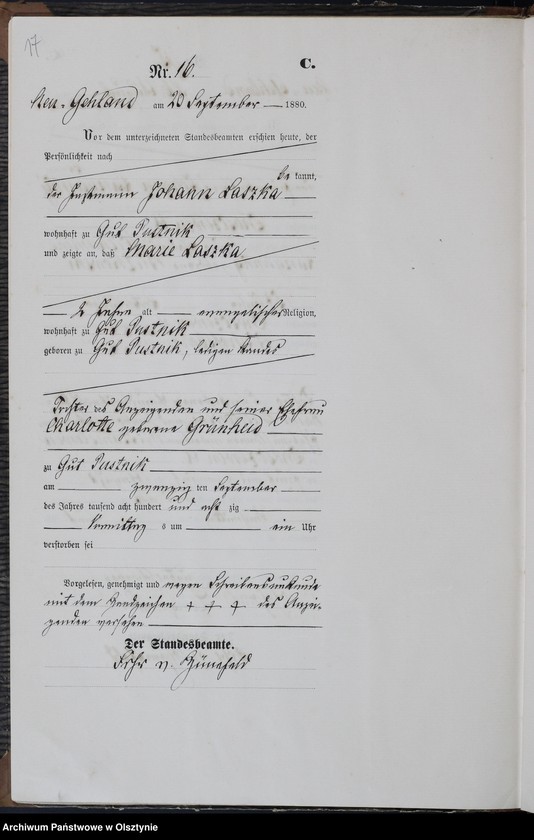 17
Nr. 16.
C.
Neu-Gehland am 20 September 1880.
Vor dem unterzeichneten Standesbeamten erschien heute, der
Persönlichkeit nach
be kannt,
der Instmann Johann Laszka
wohnhaft zu Gut Pustnik
und zeigte an, daß Marie Laszka
2 Jahre alt evangelischer Religion,
wohnhaft zu Gut Pustnik
geboren zu Gut Pustnik, ledigen Standes
Tochter des Anzeigenden und seiner Ehefrau
Charlotte geborene Grünheid
zu Gut Pustnik
am zwanzig ten September
des Jahres tausend acht hundert und acht zig
Vormittag s um ein Uhr
verstorben sei
Vorgelesen, genehmigt und wegen Schreibensunkunde
mit dem Handzeichen + + + des Anzei-
genden versehen
Der Standesbeamte.
v.
Archiwum Państwowe w Olsztynie